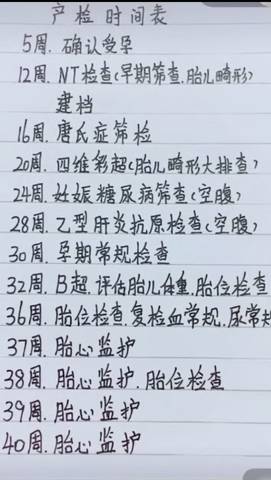 产检时间表
5周.确认受孕
12周.NT检查(早期筛查.胎儿畸形)
建档
16周.唐氏症筛检
20周.四维彩超(胎儿畸形大排查)
24周.妊娠糖尿病筛查(空腹)
28周.乙型肝炎抗原检查(空腹)
30周.孕期常规检查
32周.B超.评估胎儿体重.胎位检查
36周.胎位检查.复检血常规.尿常规
37周.胎心监护
38周.胎心监护.胎位检查
39周.胎心监护
40周.胎心监护